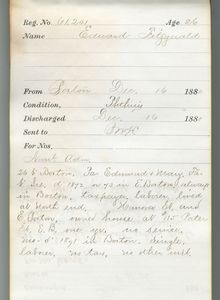 Reg. No. 61,201 Age 26
Name Edward Fitzgerald
From Boston Dec. 16 188
Condition, Phthisis
Discharged Dec. 16 188
Sent to
For Nos.
Adm.
26 b Boston. Fa Edmund + Mary. Fa
b. d. 1872 or 73 in E. Boston, always
in Boston, taxpayer, laborer, lived
at North end, Hanover St. and
E. Boston, owned house at
St., E.B. one yr. no service.
Mo. d. 1871 in Boston. single,
laborer, no tax, no other inst.